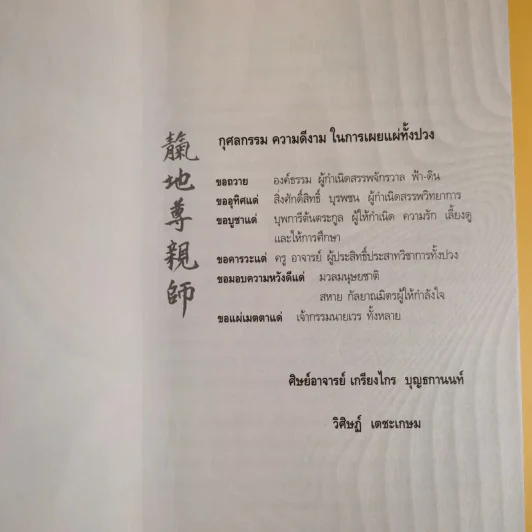 靝
地
尊
親
師
กุศลกรรม ความดีงาม ในการเผยแผ่ทั้งปวง
ขอถวาย องค์ธรรม ผู้กำเนิดสรรพจักรวาล ฟ้า-ดิน
ขออุทิศแด่ สิ่งศักดิ์สิทธิ์ บุรพชน ผู้กำเนิดสรรพวิทยาการ
ขอบูชาแด่ บุพการีต้นตระกูล ผู้ให้กำเนิด ความรัก เลี้ยงดู
และให้การศึกษา
ขอคารวะแด่ ครู อาจารย์ ผู้ประสิทธิ์ประสาทวิชาการทั้งปวง
ขอมอบความหวังดีแด่ มวลมนุษยชาติ
สหาย กัลยาณมิตรผู้ให้กำลังใจ
ขอแผ่เมตตาแด่ เจ้ากรรมนายเวร ทั้งหลาย
ศิษย์อาจารย์ เกรียงไกร บุญธกานนท์
วิศิษฏ์ เตชะเกษม